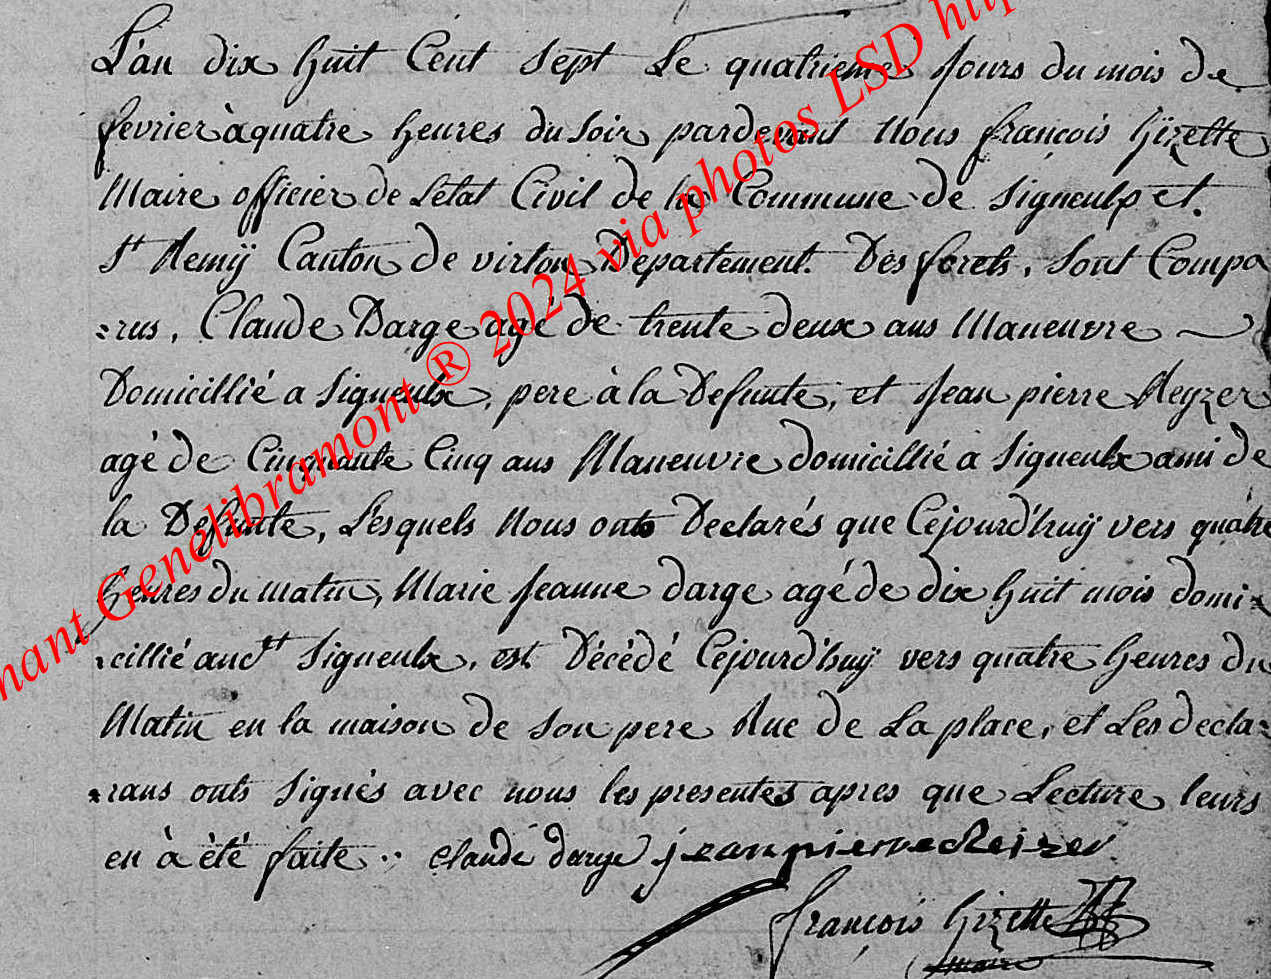 L'an dix huit Cent Sept Le quatrieme Jours du mois de
fevrier à quatre heures du Soir pardevant Nous françois hizette
Maire officier de L'état Civil de la Commune de Signeulx et.
St Remÿ Canton de virton Departement. Des forets, Sont Compa
=rus, Claude Darge agé de trente deux ans Maneuvre
Domicillié a Signeulx, pere à la Defunte, et Jean pierre Reyzer
agé de Cinquante Cinq ans Maneuvre domicillié a Signeulx ami de
la Defunte, Lesquels Nous onts Declarés que Cejourd'huÿ vers quatre
heures du matin, Marie Jeanne darge agé de dix huit mois domi=
=cillié audt Signeulx, est Décédé Cejourd'huÿ vers quatre heures du
Matin en la maison de Son pere Rue de La place, et Les decla=
=rans onts Signés avec nous les presentes apres que Lecture leurs
en à été faite.. Claude darge jean pierre Reizer
françois hizette
maire
nant Genelibramont ® 2024 via photos LSD